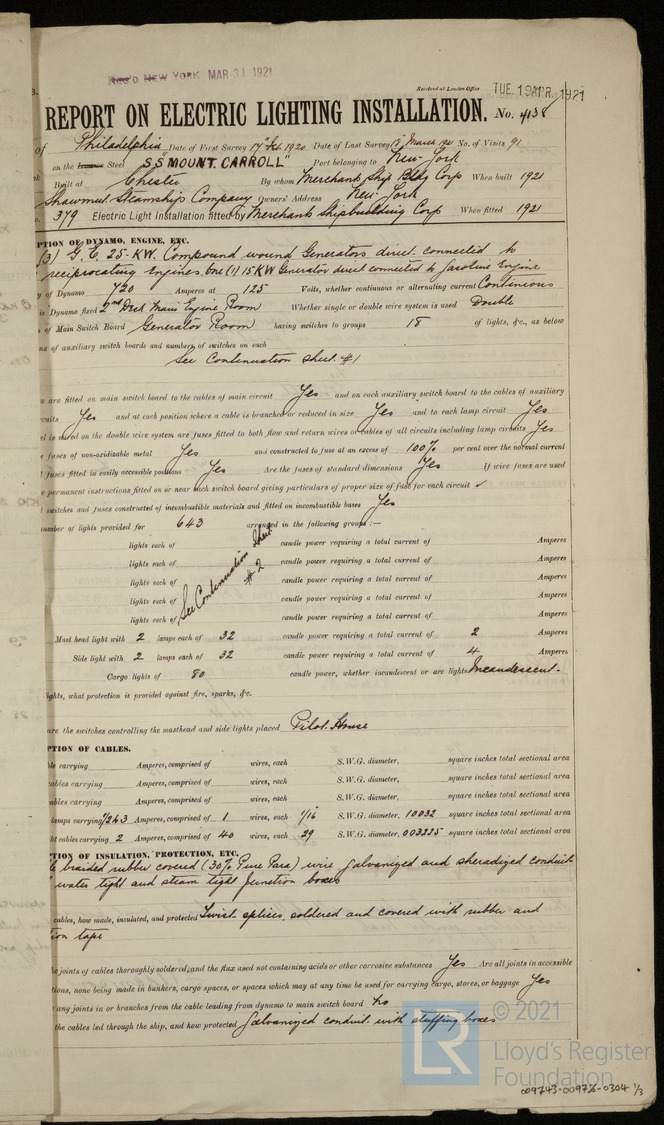 REC'D NEW YORK MAR 31 1921
Received at London Office TUE. 19 APR. 1921
REPORT ON ELECTRIC LIGHTING INSTALLATION. No. 4138
of Philadelphia Date of First Survey 17th Feb 1920 Date of Last Survey March 1921 No. of Visits 91
on the Iron or Steel S.S "MOUNT CARROLL" Port belonging to New York
Built at Chester By whom Merchant Ship Bldg Corp When built 1921
Shawmut Steamship Company Owners' Address New York
379 Electric Light Installation fitted by Merchant Shipbuilding Corp When fitted 1921
PTION OF DYNAMO, ENGINE, ETC.
(3) G.E. 25-KW. Compound wound Generators direct connected to
reciprocating Engines. One (1) 15 KW Generator direct connected to Gasoline Engine
y of Dynamo 720 Amperes at 125 Volts, whether continuous or alternating current Continious
is Dynamo fixed 2nd Deck Main Engine Room Whether single or double wire system is used Double
n of Main Switch Board Generator Room having switches to groups 18 of lights, &c., as below
ns of auxiliary switch boards and numbers of switches on each
See Continuation Sheet #1
s are fitted on main switch board to the cables of main circuit Yes and on each auxiliary switch board to the cables of auxiliary
cuits Yes and at each position where a cable is branched or reduced in size Yes and to each lamp circuit Yes
el is wired on the double wire system are fuses fitted to both flow and return wires or cables of all circuits including lamp circuits Yes
e fuses of non-oxidizable metal Yes and constructed to fuse at an excess of 100% per cent over the normal current
l fuses fitted in easily accessible positions Yes Are the fuses of standard dimensions Yes If wire fuses are used
e permanent instructions fitted on or near each switch board giving particulars of proper size of fuse for each circuit ✓
l switches and fuses constructed of incombustible materials and fitted on incombustible bases Yes
number of lights provided for 643 arranged in the following groups :—
lights each of candle power requiring a total current of Amperes
lights each of candle power requiring a total current of Amperes
lights each of candle power requiring a total current of Amperes
lights each of candle power requiring a total current of Amperes
lights each of candle power requiring a total current of Amperes
See Continuation Sheet
#2
Mast head light with 2 lamps each of 32 candle power requiring a total current of 2 Amperes
Side light with 2 lamps each of 32 candle power requiring a total current of 4 Amperes
Cargo lights of 80 candle power, whether incandescent or arc lights Incandescent.
lights, what protection is provided against fire, sparks, &c.
are the switches controlling the masthead and side lights placed Pilot House
PTION OF CABLES.
ble carrying Amperes, comprised of wires, each S.W.G. diameter, square inches total sectional area
cables carrying Amperes, comprised of wires, each S.W.G. diameter, square inches total sectional area
ables carrying Amperes, comprised of wires, each S.W.G. diameter, square inches total sectional area
lamps carrying 1/243 Amperes, comprised of 1 wires, each 1/16 S.W.G. diameter, 10032 square inches total sectional area
ht cables carrying 2 Amperes, comprised of 40 wires, each 29 S.W.G. diameter, 003225 square inches total sectional area
TION OF INSULATION, PROTECTION, ETC.
braided rubber covered (30% Pure Para) wire galvanized and sheradized conduit
water tight and steam tight Junction boxes
cables, how made, insulated, and protected Twist splices, soldered and covered with rubber and
tion tape
he joints of cables thoroughly soldered, and the flux used not containing acids or other corrosive substances Yes Are all joints in accessible
tions, none being made in bunkers, cargo spaces, or spaces which may at any time be used for carrying cargo, stores, or baggage Yes
any joints in or branches from the cable leading from dynamo to main switch board No
the cables led through the ship, and how protected Galvanized conduit with stuffing boxes
© 2021
LR
Lloyd's Register
Foundation
009743-009756-0304 1/3